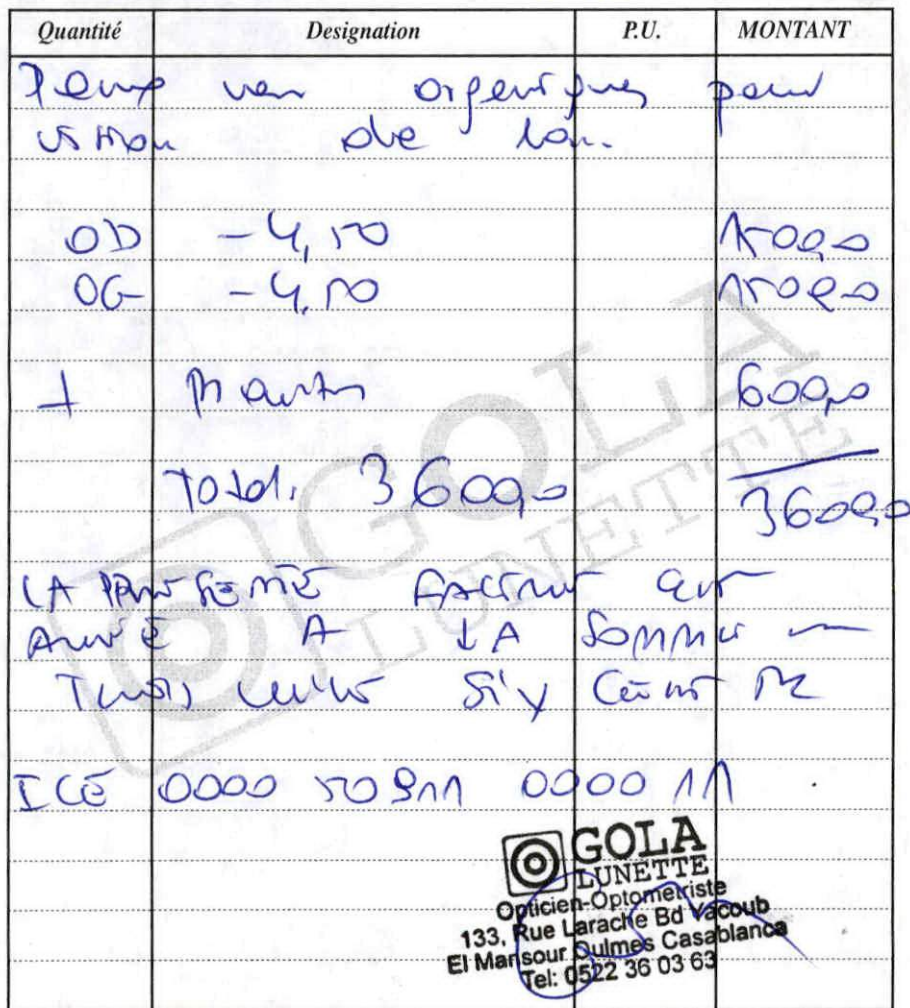 Quantité Designation P.U. MONTANT
organiques pour
vision de loin.
OD -4,50 1500,0
OG -4,50 1500,0
1 Monture 600,0
Total. 3600,0 3600,0
LA PRESENTE FACTURE
A LA SOMME
TROIS SIX CENT
ICE 0000 50911 0000 11
GOLA
LUNETTE
GOLA
LUNETTE
Opticien-Optometriste
133, Rue Larache Bd Yacoub
El Mansour Oulmes Casablanca
Tel: 0522 36 03 63